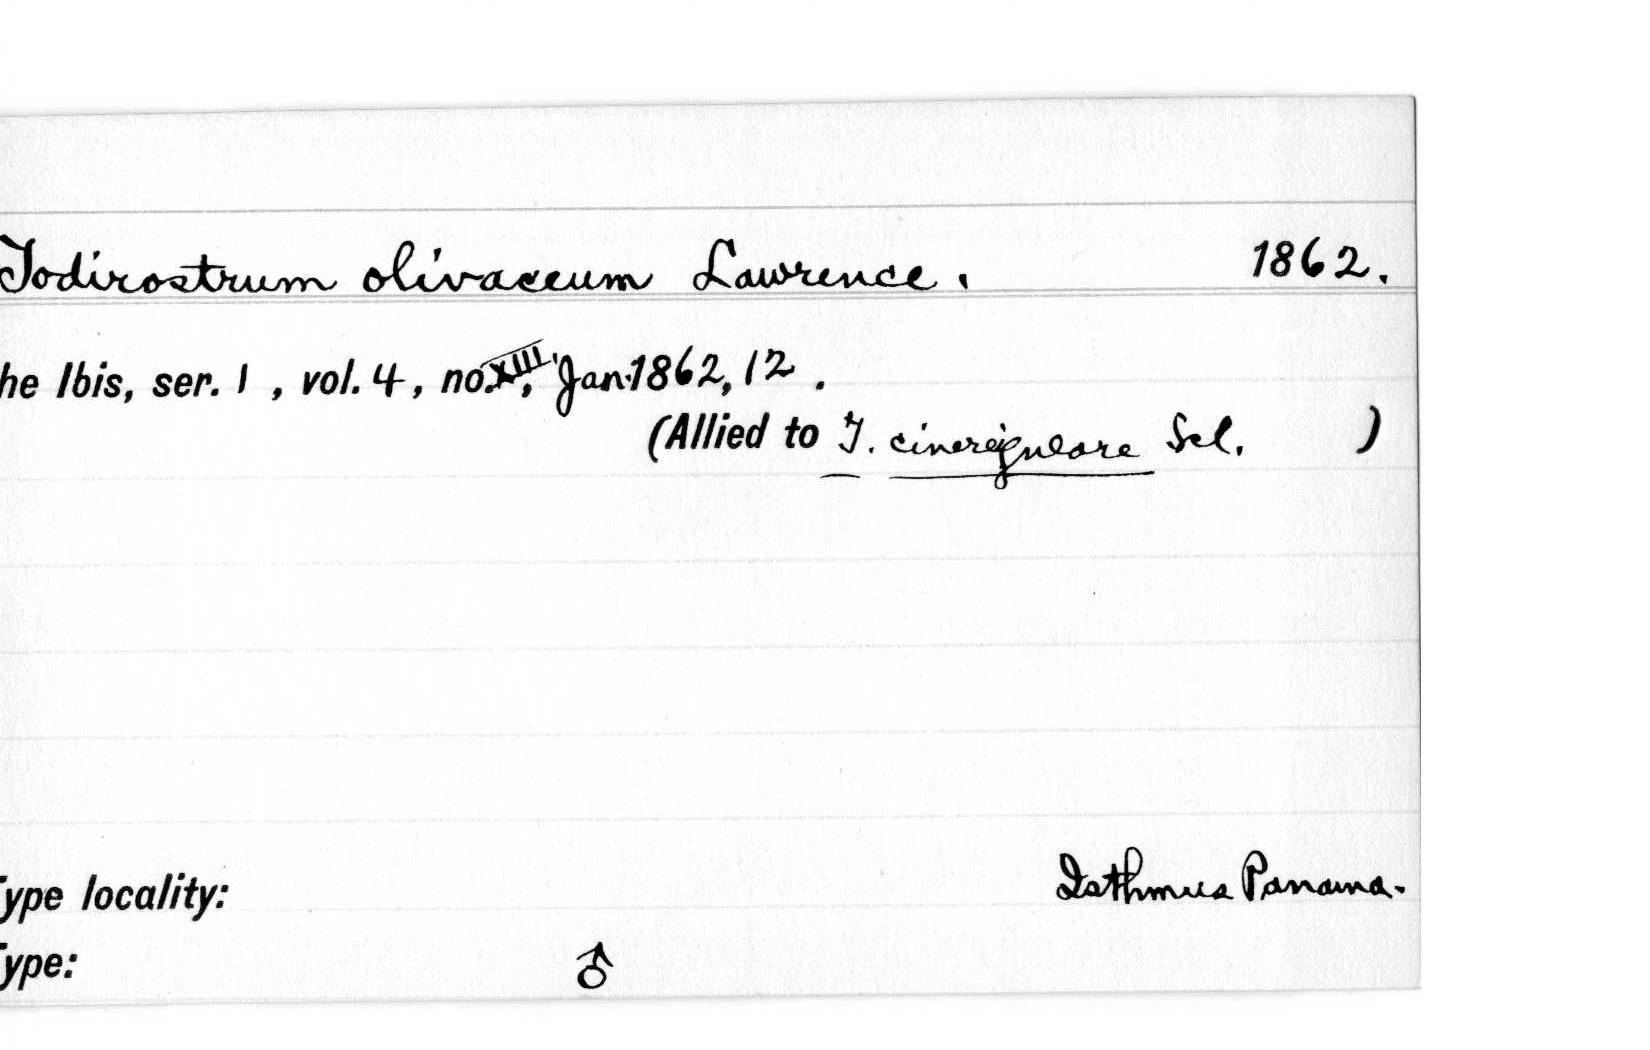 Todirostrum olivaceum Lawrence. 1862.
he Ibis, ser. 1, vol. 4, no. XIII, Jan. 1862, 12.
(Allied to T. cinereigulare Scl. )
Type locality: Isthmus Panama.
Type: ♂